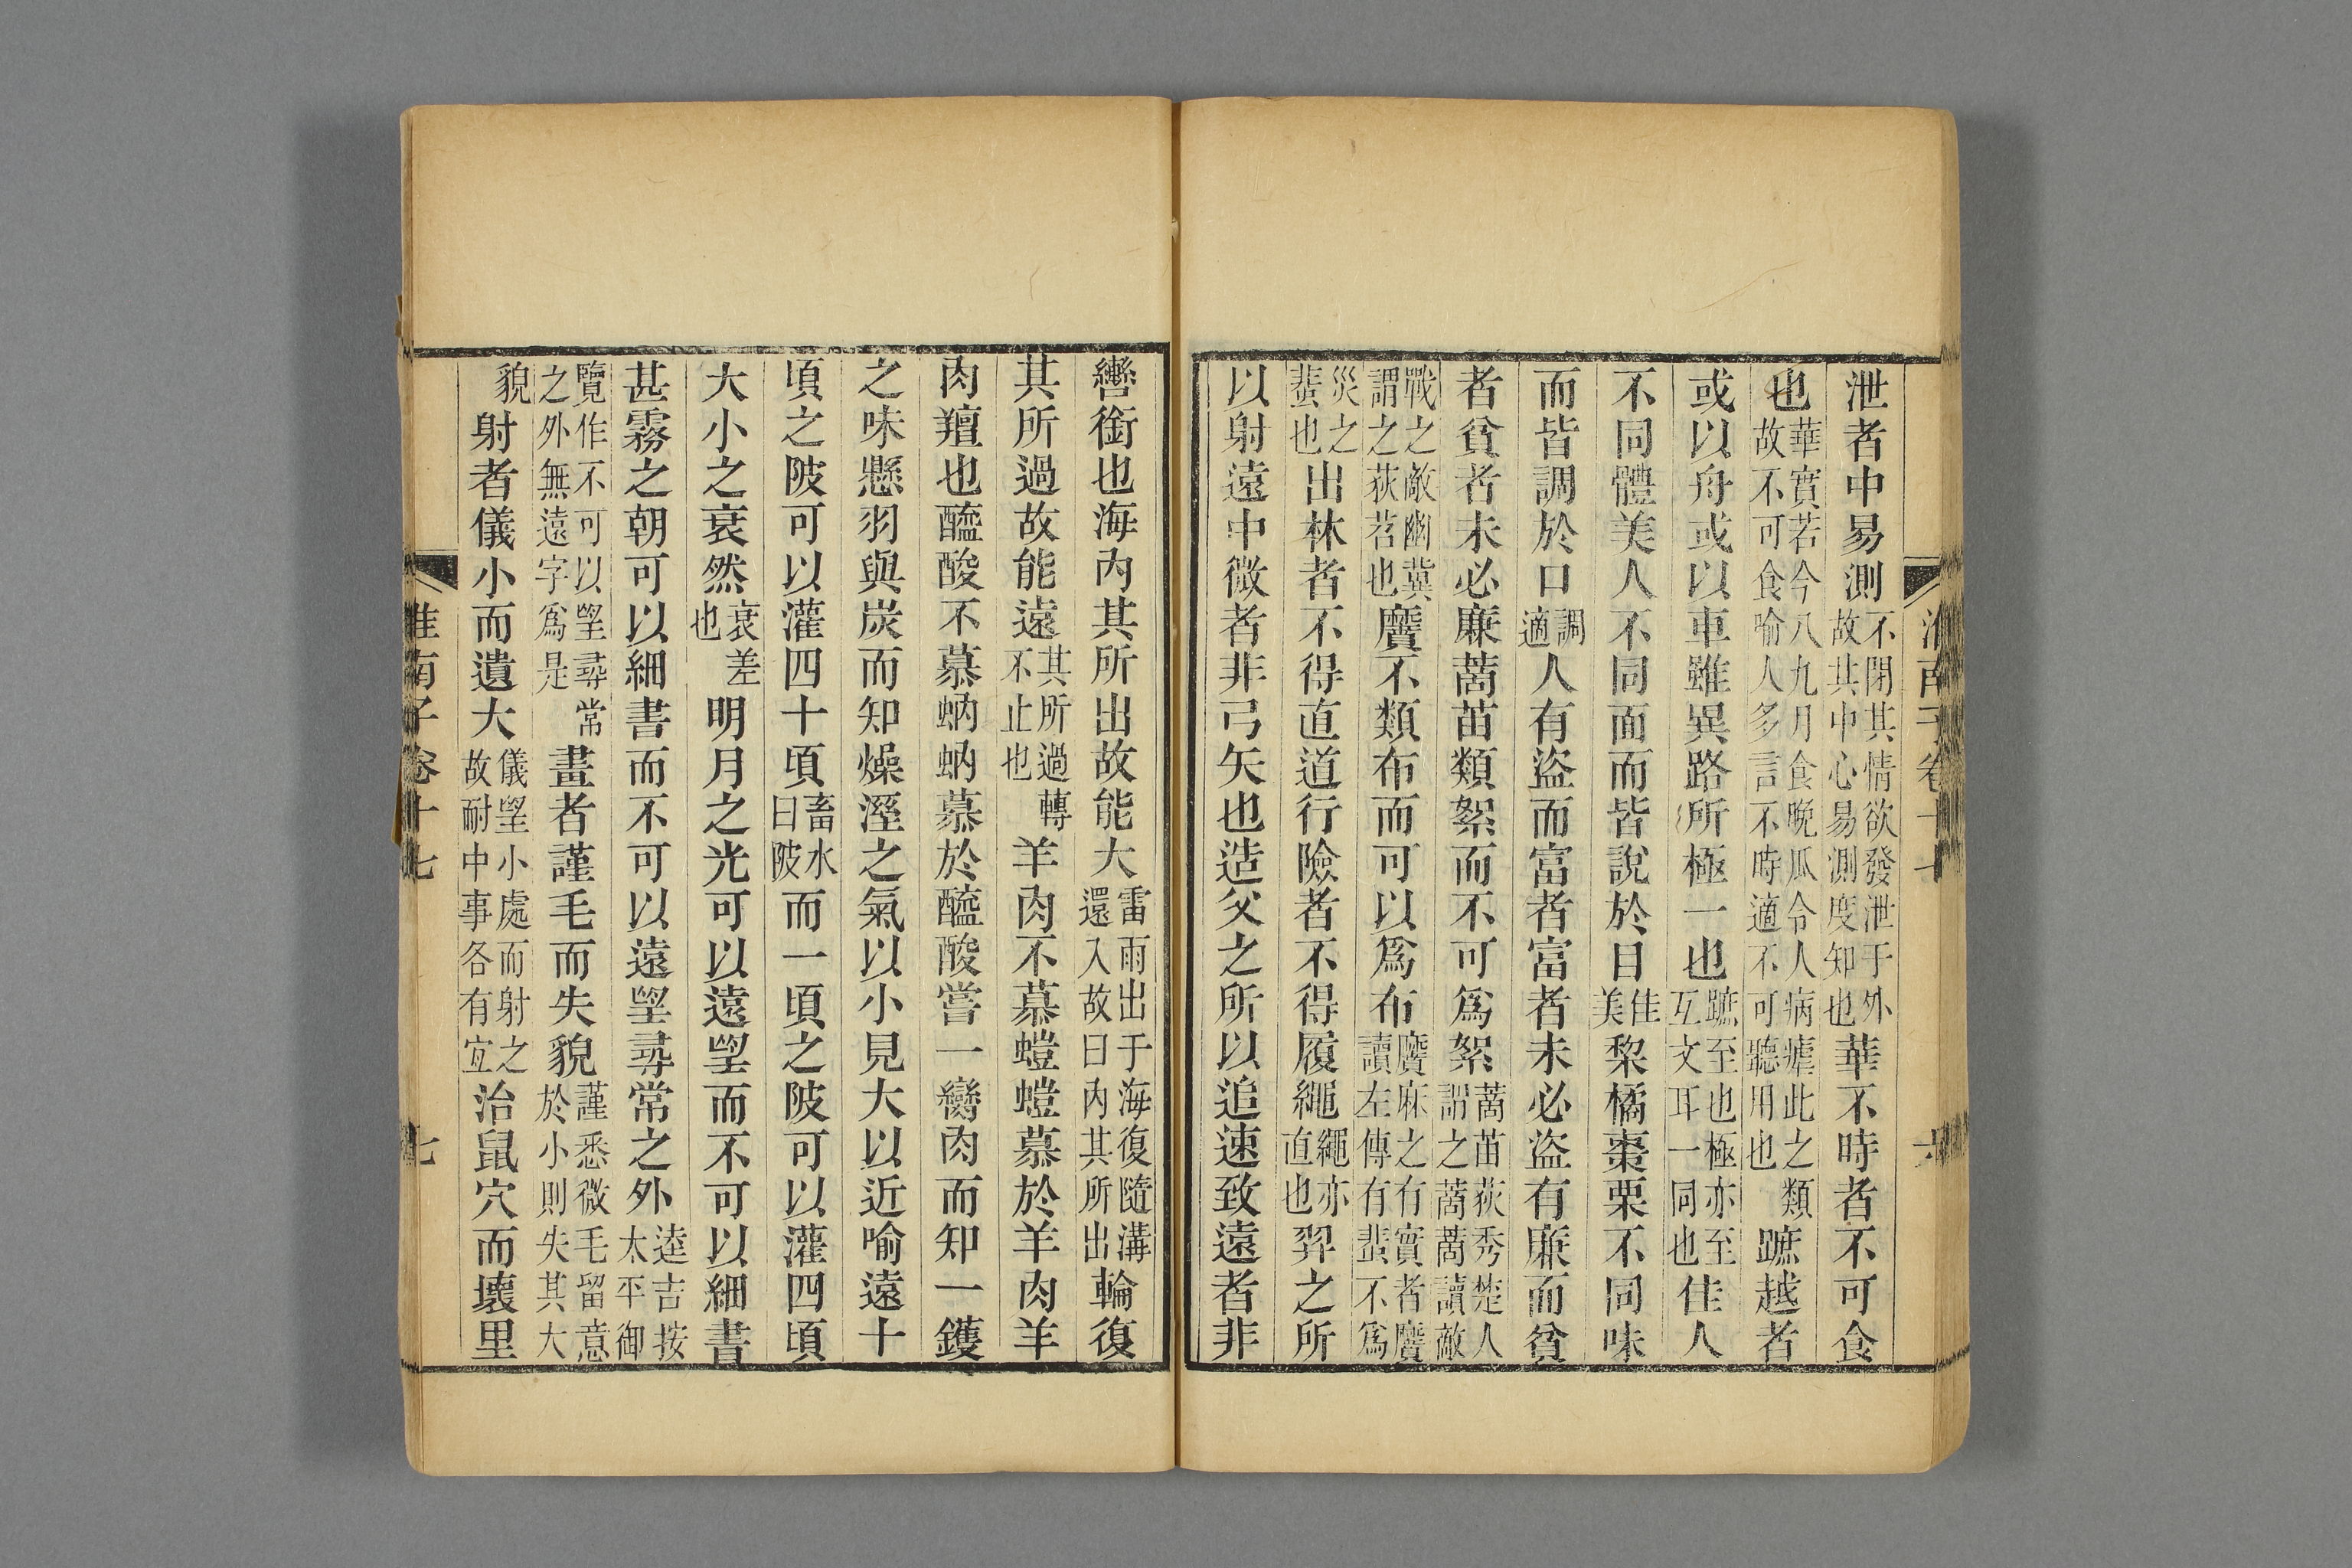 淮南子卷十七 六
泄者中易測不閉其情欲發泄于外故其中心易測度知也華不時者不可食
也華實若今八九月食晚瓜令人病瘧此之類故不可食喻人多言不時適不可聽用也蹠越者
或以舟或以車雖異路所極一也蹠至也極亦至互文耳一同也佳人
不同體美人不同面而皆說於目佳美棃橘棗栗不同味
而皆調於口調適人有盜而富者富者未必盜有廉而貧
者貧者未必廉蔐苗類絮而不可爲絮蔐苗荻秀楚人謂之蔐蔐讀敵
戰之敵幽冀謂之荻苕也黂不類布而可以爲布黂麻之有實者黂讀左傳有蜚不爲
災之蜚也出林者不得直道行險者不得履繩繩亦直也羿之所
以射遠中微者非弓矢也造父之所以追速致遠者非
轡銜也海內其所出故能大雷雨出于海復隨溝還入故曰內其所出輪復
其所過故能遠其所過轉不止也羊肉不慕螘螘慕於羊肉羊
肉羶也醯酸不慕蚋蚋慕於醯酸嘗一臠肉而知一鑊
之味懸羽與炭而知燥溼之氣以小見大以近喻遠十
頃之陂可以灌四十頃畜水曰陂而一頃之陂可以灌四頃
大小之衰然衰差也明月之光可以遠望而不可以細書
甚霧之朝可以細書而不可以遠望尋常之外逵吉按太平御
覽作不可以望尋常之外無遠字爲是畫者謹毛而失貌謹悉微毛留意於小則失其大
貌射者儀小而遺大儀望小處而射之故耐中事各有宜治鼠穴而壞里
淮南子卷十七 七